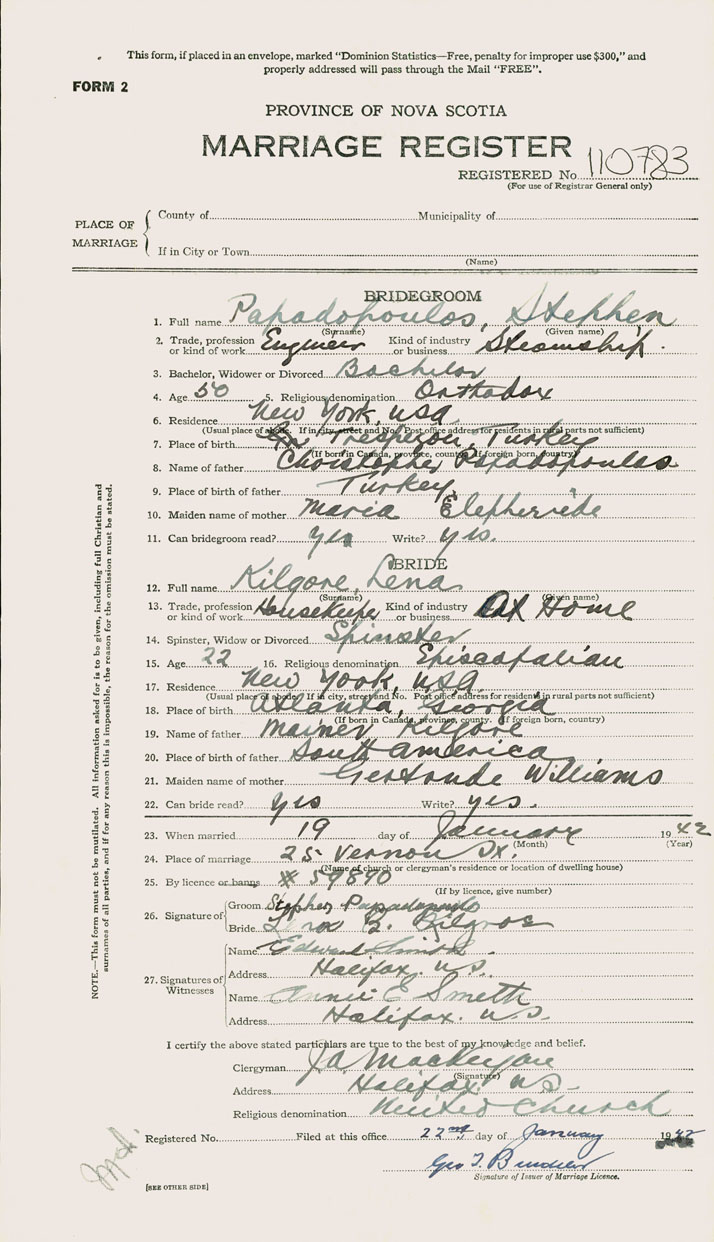 This form, if placed in an envelope, marked "Dominion Statistics—Free, penalty for improper use $300," and
properly addressed will pass through the Mail "FREE".
FORM 2
PROVINCE OF NOVA SCOTIA
MARRIAGE REGISTER
REGISTERED No. 110783
(For use of Registrar General only)
PLACE OF MARRIAGE
County of Municipality of
If in City or Town
(Name)
BRIDEGROOM
1. Full name Papadopoulos, Stephen
(Surname) (Given name)
2. Trade, profession or kind of work Engineer Kind of industry or business Steamship.
3. Bachelor, Widower or Divorced Bachelor
4. Age 50 5. Religious denomination Orthodox
6. Residence New York, USA
(Usual place of abode. If in city, street and No. Post office address for residents in rural parts not sufficient)
7. Place of birth Turkey
(If born in Canada, province, county. If foreign born, country)
8. Name of father Christopher Papadopoulos
9. Place of birth of father Turkey
10. Maiden name of mother Maria Elepherride
11. Can bridegroom read? yes Write? yes.
BRIDE
12. Full name Kilgore, Lena
(Surname) (Given name)
13. Trade, profession or kind of work Housekeeper Kind of industry or business At Home
14. Spinster, Widow or Divorced Spinster
15. Age 22 16. Religious denomination Episcopalian
17. Residence New York, USA.
(Usual place of abode. If in city, street and No. Post office address for residents in rural parts not sufficient)
18. Place of birth Atlanta, Georgia
(If born in Canada, province, county. If foreign born, country)
19. Name of father Kilgore
20. Place of birth of father South America
21. Maiden name of mother Gertrude Williams
22. Can bride read? yes Write? yes.
23. When married 19 day of January 1942
(Month) (Year)
24. Place of marriage 25 Vernon St.
(Name of church or clergyman's residence or location of dwelling house)
25. By licence or banns # 59890
(If by licence, give number)
26. Signature of
Groom Stephen Papadopoulos
Bride B. Kilgore
27. Signatures of Witnesses
Name Edward Smith
Address Halifax. N.S.
Name Annie E Smeth
Address Halifax. N.S.
I certify the above stated particulars are true to the best of my knowledge and belief.
Clergyman
(Signature)
Address Halifax, N.S.
Religious denomination United Church
Registered No. Filed at this office 22nd day of January 1942
Geo T.
Signature of Issuer of Marriage Licence.
[SEE OTHER SIDE]
NOTE.—This form must not be mutilated. All information asked for is to be given, including full Christian and
surnames of all parties, and if for any reason this is impossible, the reason for the omission must be stated.